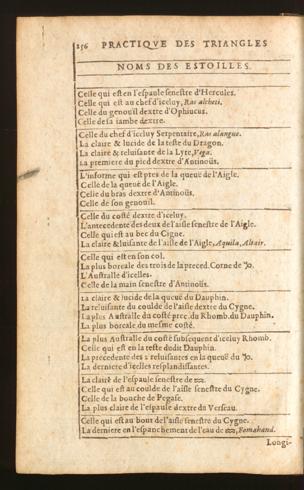 256 PRACTIQVE DES TRIANGLES
NOMS DES ESTOILLES.
Celle qui est en l'espaule senestre d'Hercules.
Celle qui est au chef d'iceluy, Ras alcheti.
Celle du genouil dextre d'Ophiucus.
Celle de sa iambe dextre.
Celle du chef d'iceluy Serpentaire, Ras alangue.
La claire & lucide de la teste du Dragon.
La claire & reluisante de la Lyre, Vega.
La premiere du pied dextre d'Antinoüs.
L'informe qui est pres de la queuë de l'Aigle.
Celle de la queuë de l'Aigle.
Celle du bras dextre d'Antinoüs.
Celle de son genouil.
Celle du costé dextre d'iceluy.
L'antecedente des deux de l'aisle senestre de l'Aigle.
Celle qui est au bec du Cigne.
La claire & luisante de l'aisle de l'Aigle, Aquila, Altair.
Celle qui est en son col.
La plus boreale des trois de la preced. Corne de ♑.
L'Australle d'icelles.
Celle de la main senestre d'Antinoüs.
La claire & lucide de la queuë du Dauphin.
La reluisante du coulde de l'aisle dextre du Cygne.
La plus Australle du costé prec. du Rhomb. du Dauphin.
La plus boreale du mesme costé.
La plus Australle du costé subsequent d'iceluy Rhomb.
Celle qui est en la teste dudit Dauphin.
La precedente des 2 reluisantes en la queuë du ♑.
La derniere d'icelles resplandissantes.
La claire de l'espaule senestre de ♒.
Celle qui est au coulde de l'aisle senestre du Cygne.
Celle de la bouche de Pegase.
La plus claire de l'espaule dextre du Verseau.
Celle qui est au bout de l'aisle senestre du Cygne.
La derniere en l'espanchement de l'eau de ♒, Fomahand.
Longi-